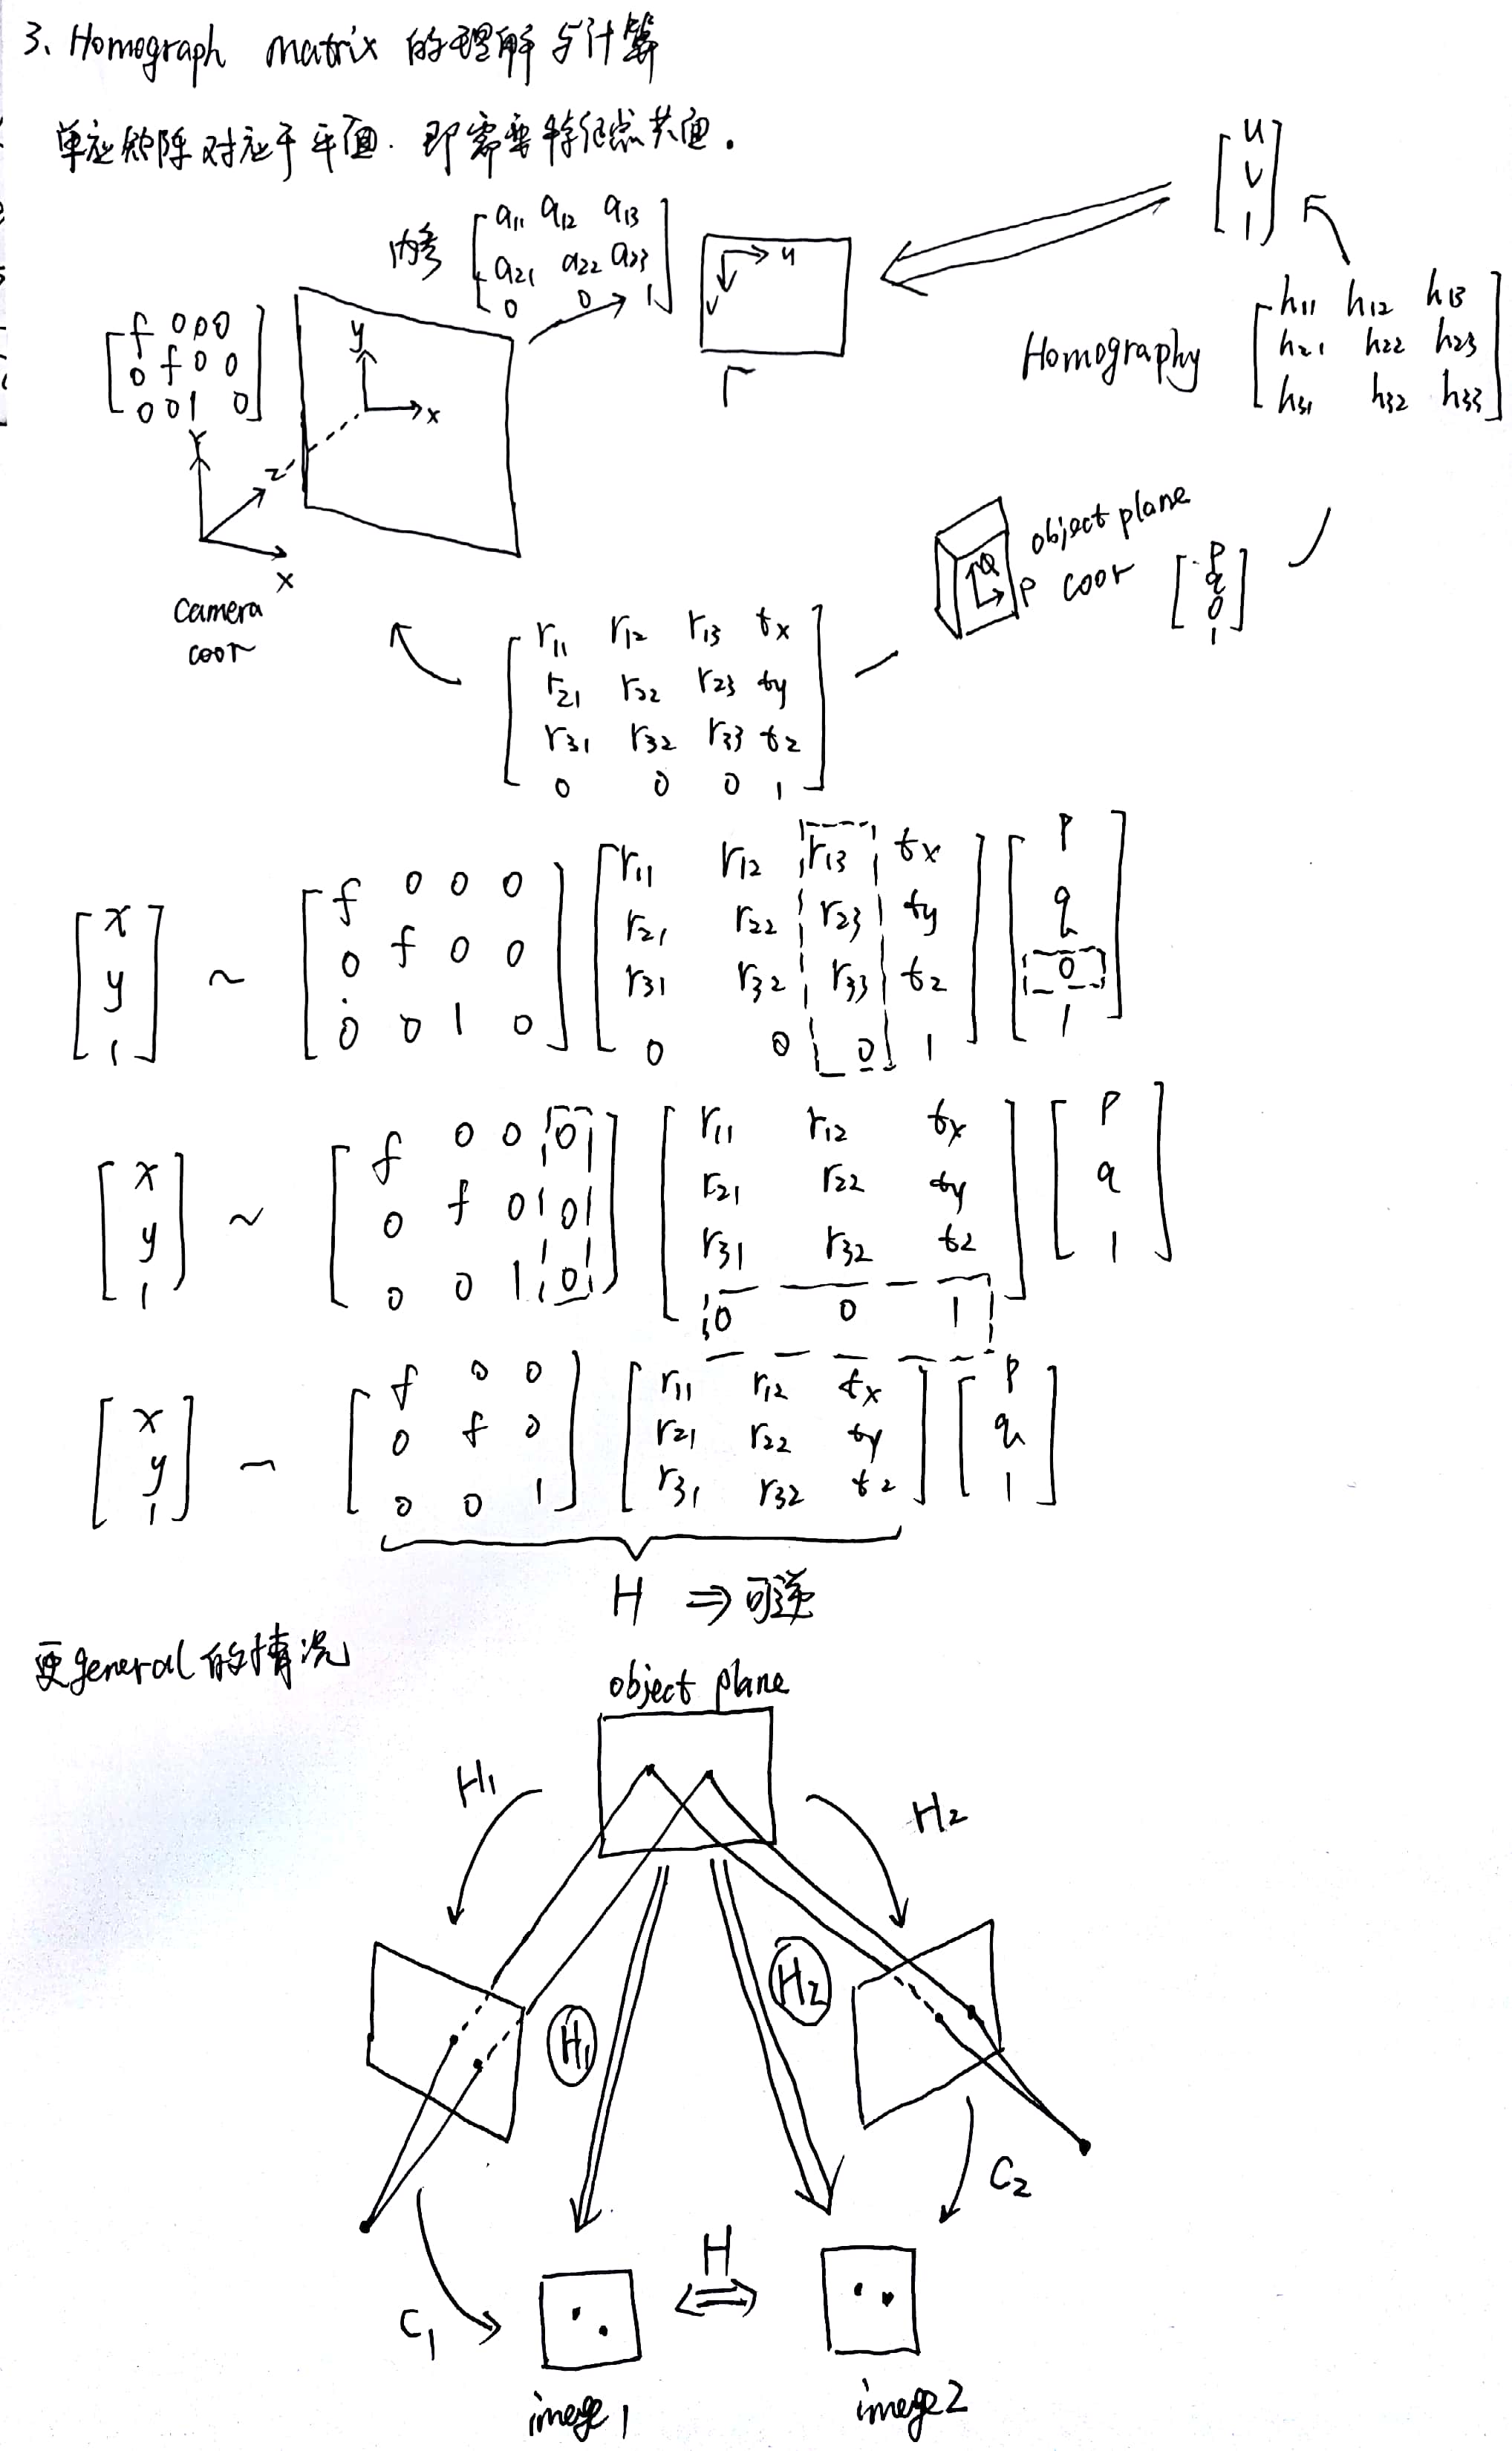 3、Homograph matrix 的理解与计算
单应矩阵对应于平面. 即需要特征点共面.
[u
v
1]
内参 [a11 a12 a13
a21 a22 a23
0 0 1]
u
v
Homography [h11 h12 h13
h21 h22 h23
h31 h32 h33]
[f 0 0 0
0 f 0 0
0 0 1 0]
y
x
Y
Z
X
Camera
coor
object plane
Q
P coor [p
q
0
1]
[r11 r12 r13 tx
r21 r22 r23 ty
r31 r32 r33 tz
0 0 0 1]
[x y 1] ~ [f 0 0 0
0 f 0 0
0 0 1 0] [r11 r12 r13 tx
r21 r22 r23 ty
r31 r32 r33 tz
0 0 0 1] [p q 0 1]
[x y 1] ~ [f 0 0 0
0 f 0 0
0 0 1 0] [r11 r12 tx
r21 r22 ty
r31 r32 tz
0 0 1] [p q 1]
[x y 1] ~ [f 0 0
0 f 0
0 0 1] [r11 r12 tx
r21 r22 ty
r31 r32 tz] [p q 1]
H ⇒ 可逆
更general的情况
object plane
H1
H2
H1
H2
C1
C2
H
image1
image2